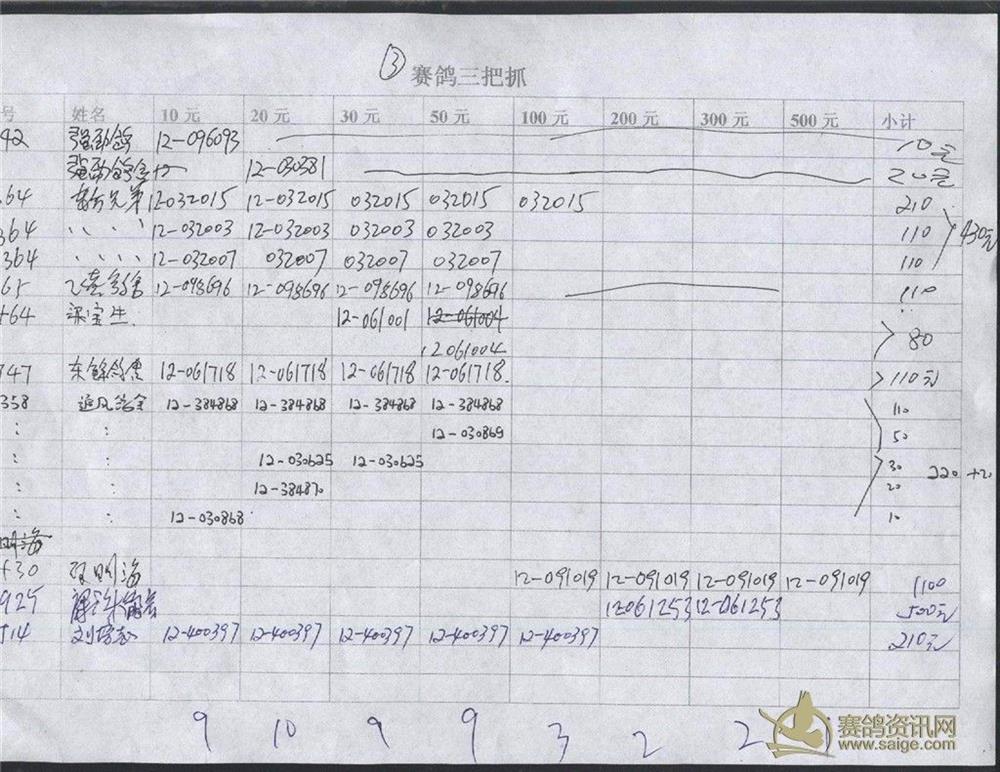 ③ 赛鸽三把抓
号 姓名 10元 20元 30元 50元 100元 200元 300元 500元 小计
42 强劲鸽 12-096093 10元
强劲鸽舍 12-030381 20元
64 兄弟 12-032015 12-032015 032015 032015 032015 210
364 、、、、 12-032003 12-032003 032003 032003 110 430元
364 、、、、 12-032007 032007 032007 032007 110
65 12-098696 12-098696 12-098696 12-098696 110
464 梁宝生 12-061001 12-061004
12061004 80
747 12-061718 12-061718 12-061718 12-061718 110元
358 追风鸽舍 12-384868 12-384868 12-384868 12-384868 110
: : 12-030869 50
: : 12-030625 12-030625 30 220 +20
: : 12-384870 20
: : 12-030868 10
明海
430 明海 12-091019 12-091019 12-091019 12-091019 1100
925 12061253 12-061253 500元
514 12-400397 12-400397 12-400397 12-400397 12-400397 210元
9 10 9 9 3 2 2
赛鸽资讯网
www.saige.com